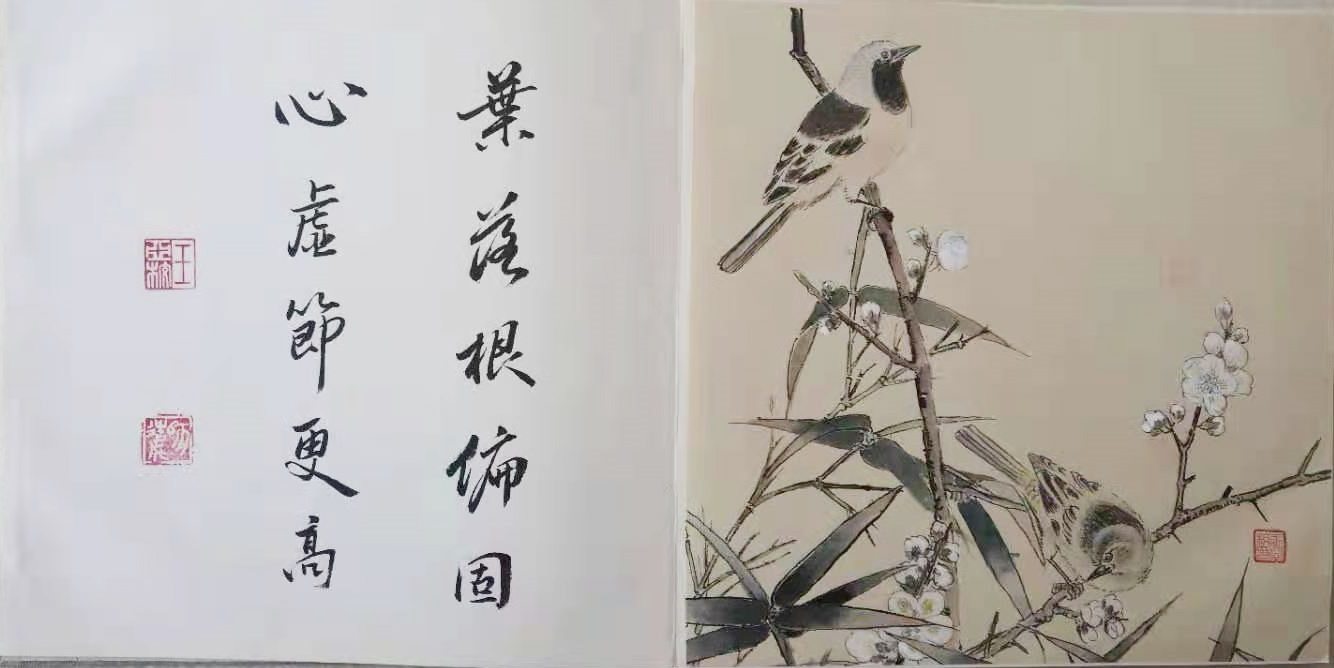 葉落根偏固
心虛節更高